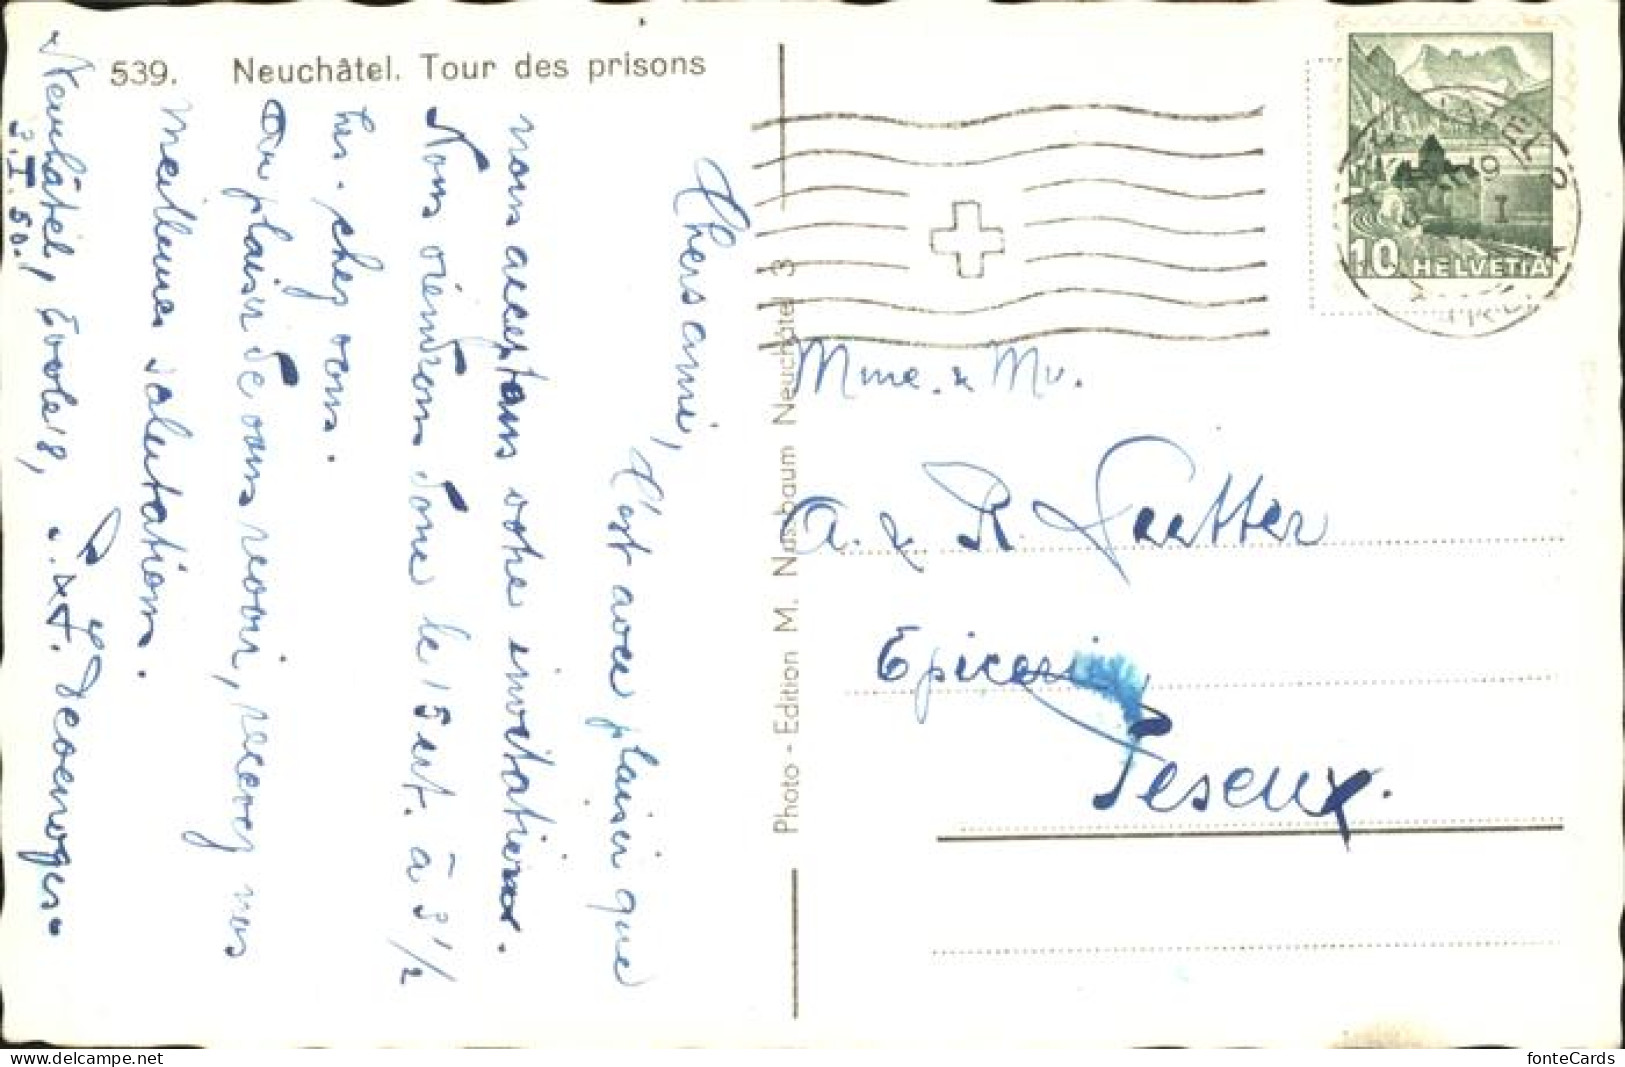 539. Neuchâtel. Tour des prisons
Chers amis,
C'est avec plaisir que
nous acceptons votre invitation.
Nous viendrons donc le 15 crt. à 3 1/2
hrs. chez vous.
Au plaisir de vous revoir, recevez nos
meilleures salutations.
Neuchâtel, Evole 18,
3.I.50.
Photo - Edition M. Nussbaum Neuchâtel 3
10 HELVETIA
Mme. & Mr.
A. & R.
Epicerie
Peseux.
fonteCards
https://www.delcampe.net/